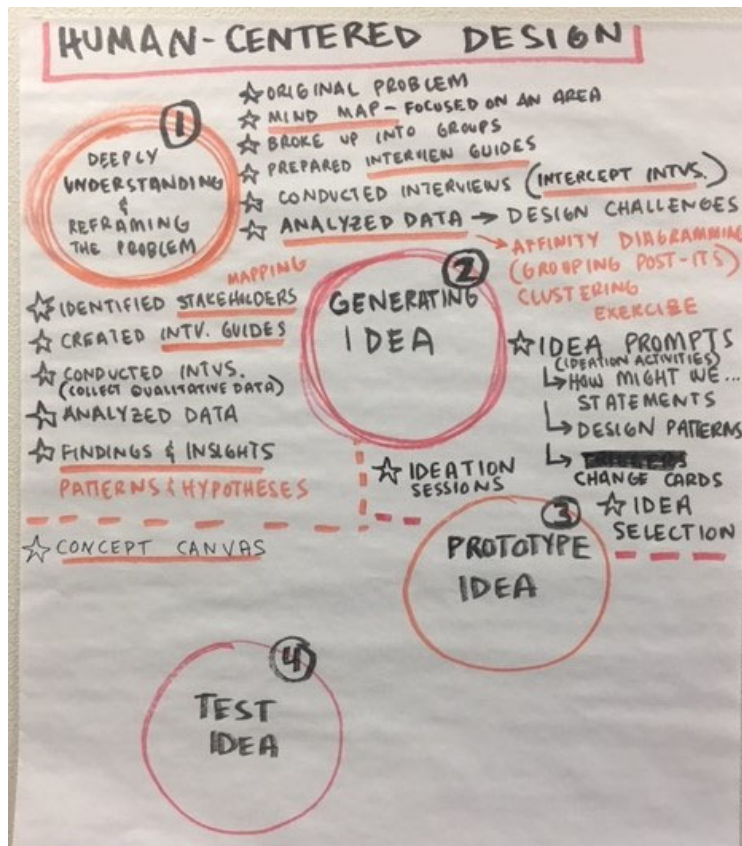 HUMAN-CENTERED DESIGN
1
DEEPLY
UNDERSTANDING
&
REFRAMING
THE PROBLEM
☆ ORIGINAL PROBLEM
☆ MIND MAP - FOCUSED ON AN AREA
☆ BROKE UP INTO GROUPS
☆ PREPARED INTERVIEW GUIDES
☆ CONDUCTED INTERVIEWS (INTERCEPT INTVS.)
☆ ANALYZED DATA → DESIGN CHALLENGES
→ AFFINITY DIAGRAMMING
(GROUPING POST-ITS)
CLUSTERING
EXERCISE
MAPPING
☆ IDENTIFIED STAKEHOLDERS
☆ CREATED INTV. GUIDES
☆ CONDUCTED INTVS.
(COLLECT QUALITATIVE DATA)
☆ ANALYZED DATA
☆ FINDINGS & INSIGHTS
PATTERNS & HYPOTHESES
2
GENERATING
IDEA
☆ IDEA PROMPTS
(IDEATION ACTIVITIES)
↳ HOW MIGHT WE...
STATEMENTS
↳ DESIGN PATTERNS
↳
CHANGE CARDS
☆ IDEATION
SESSIONS
☆ IDEA
SELECTION
☆ CONCEPT CANVAS
3
PROTOTYPE
IDEA
4
TEST
IDEA